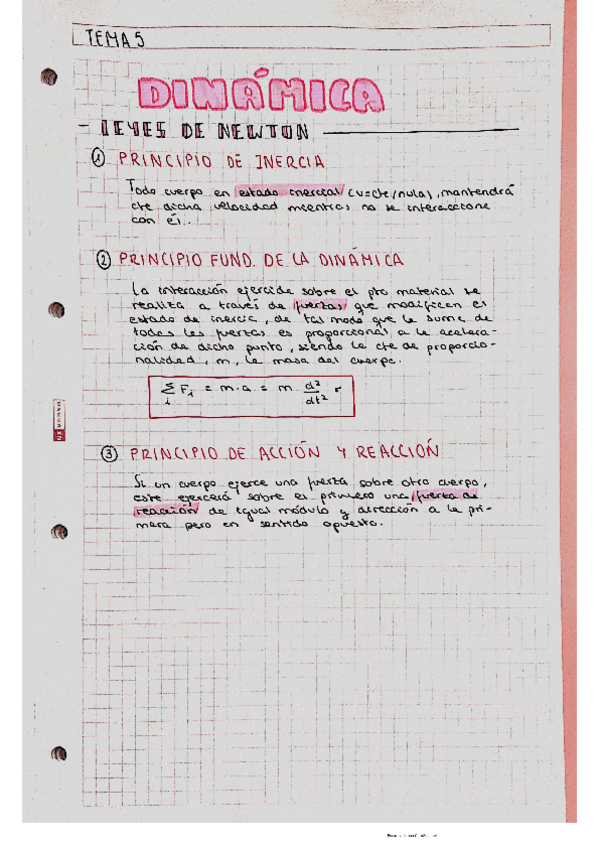 TEMA 5
DINÁMICA
- LEYES DE NEWTON
① PRINCIPIO DE INERCIA
Todo cuerpo en estado inercial (v=cte/nula), mantendrá
cte dicha velocidad mientras no se interaccione
con él.
② PRINCIPIO FUND. DE LA DINÁMICA
La interacción ejercida sobre el pto material se
realiza a través de fuerzas, que modifican el
estado de inercia, de tal modo que la suma de
todas las fuerzas es proporcional a la acelera-
ción de dicho punto, siendo la cte de proporcio-
nalidad, m, la masa del cuerpo.
∑ᵢ Fᵢ = m·a = m d²/dt² r
③ PRINCIPIO DE ACCIÓN Y REACCIÓN
Si un cuerpo ejerce una fuerza sobre otro cuerpo,
este ejercerá sobre el primero una fuerza de
reacción de igual módulo y dirección a la pri-
mera pero en sentido opuesto.